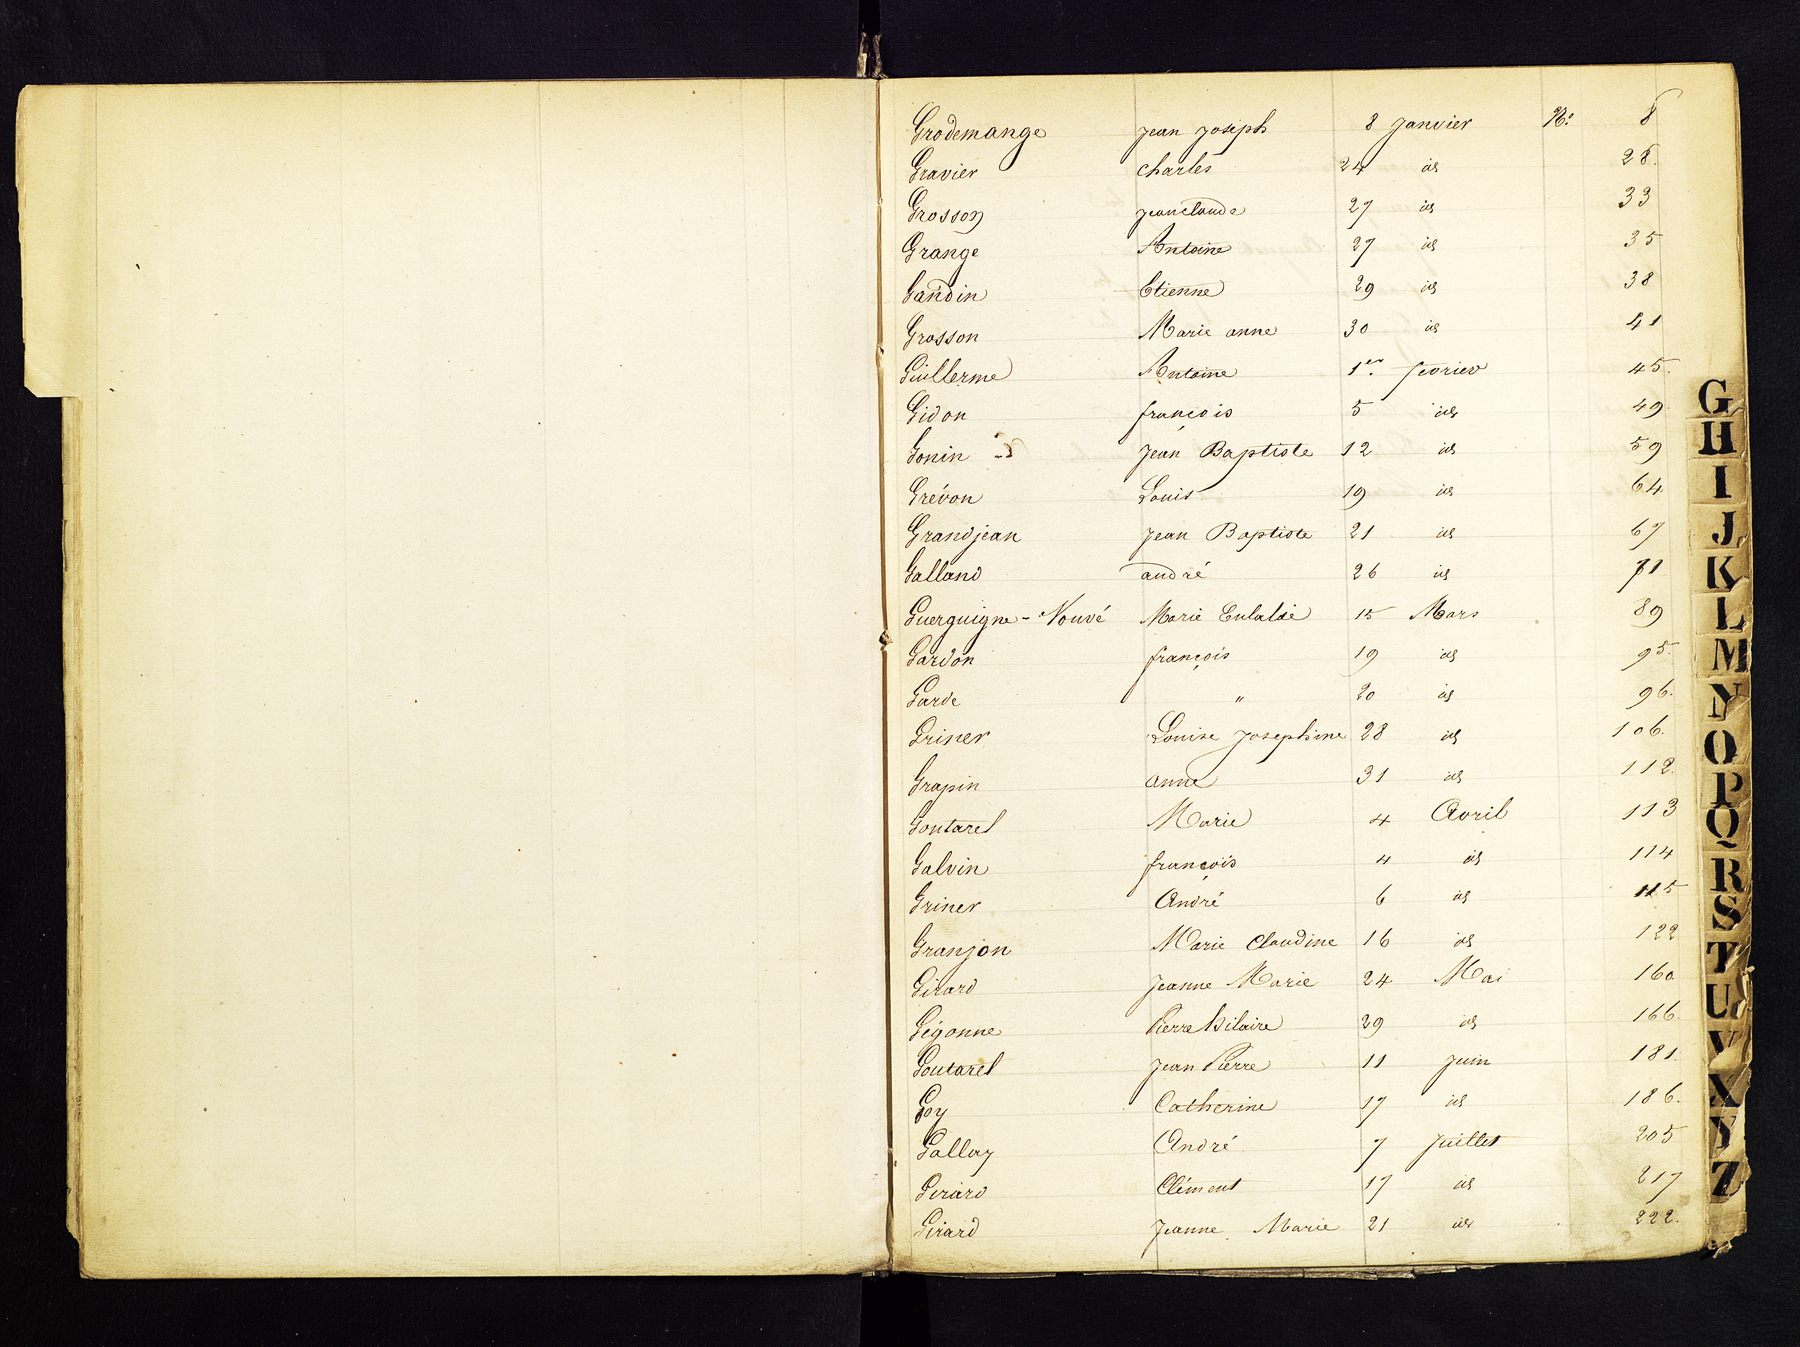 Grodemange Jean Joseph 8 Janvier No. 8
Gravier Charles 24 id 28.
Grosson Jean claude 27 id 33
Grange Antoine 27 id 35
Gandin Etienne 29 id 38
Grosson Marie anne 30 id 41
Guillerme Antoine 1er. fevrier 45.
Gidon françois 5 id 49.
Gonin Jean Baptiste 12 id 59
Grévon Louis 19 id 64
Grandjean Jean Baptiste 21 id 67
Galland andré 26 id 71
Guerguigne-Nouvé Marie Eulalie 15 Mars 89
Gardon françois 19 id 95.
Garde " 20 id 96.
Griner Louise Josephine 28 id 106.
Grapin anne 31 id 112.
Goutarel Marie 4 Avril 113
Galvin françois 4 id 114
Griner André 6 id 115
Granjon Marie Claudine 16 id 122
Girard Jeanne Marie 24 Mai 160
Gégonne Pierre hilaire 29 id 166.
Goutarel Jean Pierre 11 Juin 181.
Goy Catherine 17 id 186.
Gallay André 7 Juillet 205
Girard Clément 17 id 217
Girard Jeanne Marie 21 id 222.
G
H
I
J
K
L
M
N
O
P
Q
R
S
T
U
V
X
Y
Z